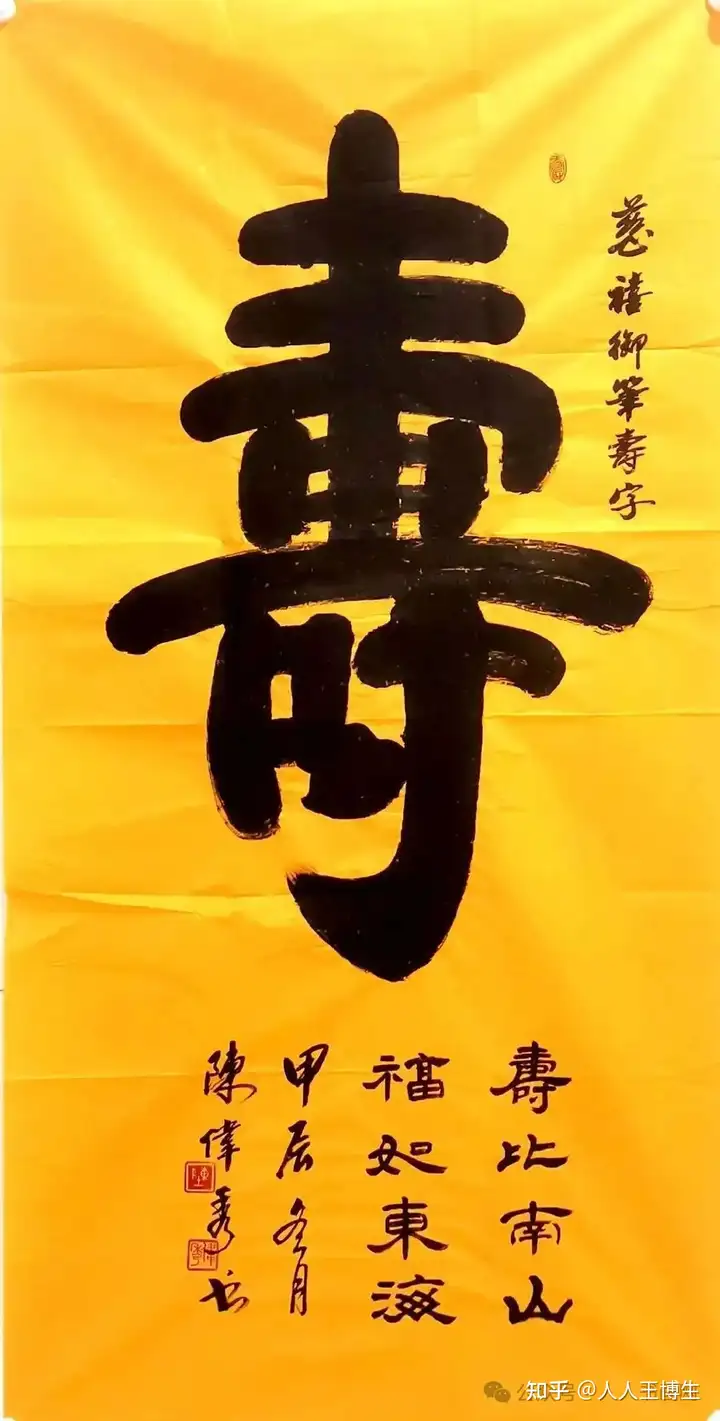 壽
慈禧御筆壽字
壽比南山
福如東海
甲辰冬月
陳偉秀书
知乎 @人人王博生